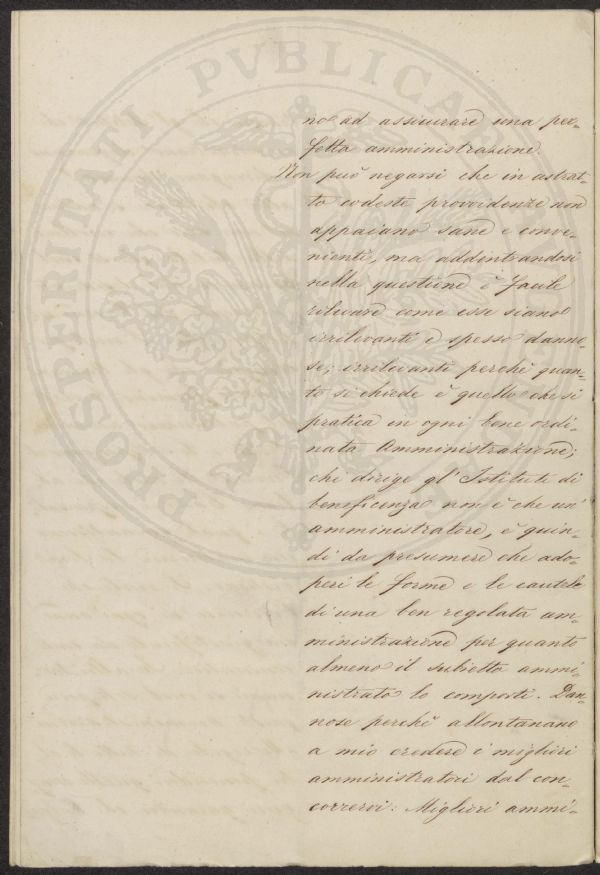 no ad assicurare una per=
fetta amministrazione.
Non può negarsi che in astrat=
to codeste provvidenze non
appaiano sane e conve=
nienti, ma addintrandosi
nella questione è facile
rilevare come esse siano
irrilevanti e spesso danno=
se; irrilevanti perchè quan=
to si chiede è quello che si
pratica in ogni bene ordi=
nata Amministrazione;
chi dirige gl' Istituti di
beneficenza non è che un'
amministratore, è quin=
di da presumere che ado=
peri le forme e le cautele
di una ben regolata am=
ministrazione per quanto
almeno il subietto ammi=
nistrato lo comporti. Dan=
nose perchè allontanano
a mio credere i migliori
amministratori dal con=
corrervi: Migliori ammi=
PROSPERITATI PVBLICAE